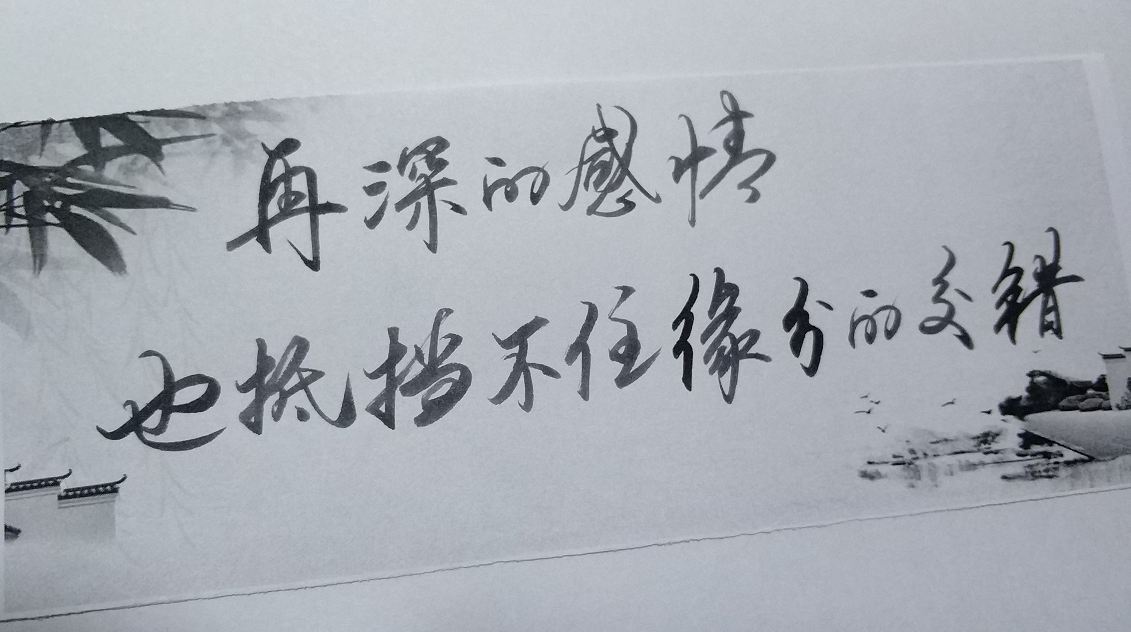 再深的感情
也抵挡不住缘分的交错